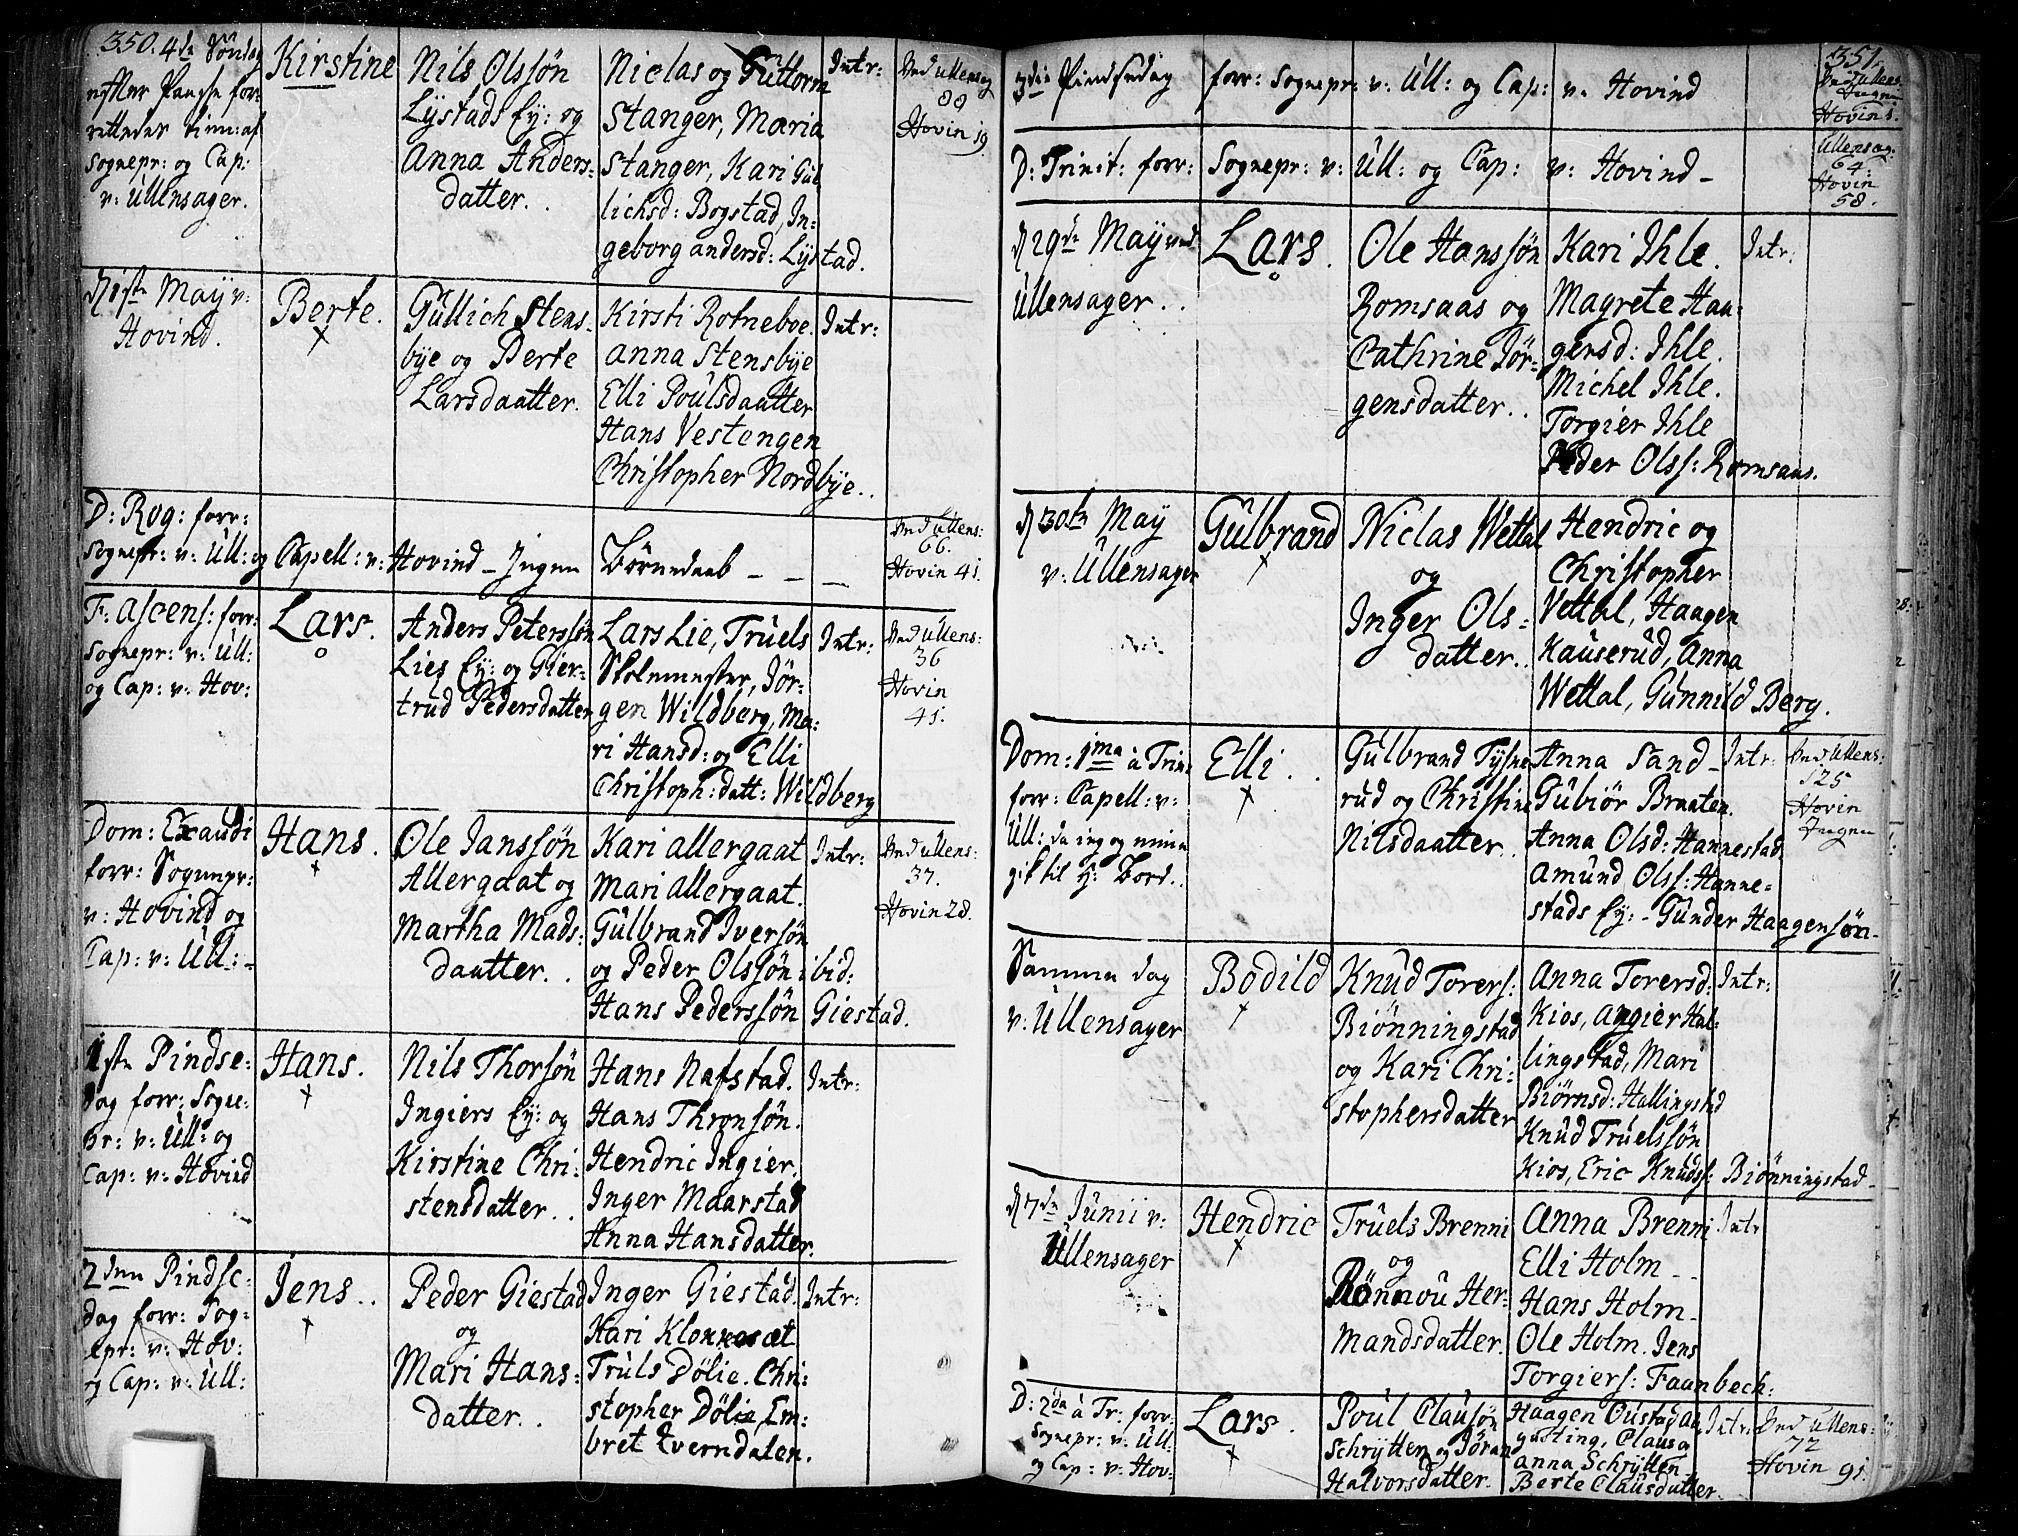 350.
4de Söndag
efter Paasche for-
rettedes tien: af
Sognepr: og Cap:
v: Ullensager.
Kirstine
Nils Olssön
Lystads Ey: og
Anna Anders-
datter.
Niclas og Guttorm
Stanger, Maria
Stanger, Kari Gul
lichsd: Bogstad, In-
geborg andersd: Lystad.
Intr:
Ved Ullensag
88
Hovin 19.
d 1ste Maÿ v:
Hovind.
Berte.
Gullich Stens-
bÿe og Berte
Larsdaatter.
Kirsti Rotneboe.
Anna Stensbÿe
Elli Poulsdaatter
Hans Vestengen
Christopher Nordbÿe..
Intr:
D: Rog: forr:
Sognepr: v: Ull: og Capell: v: Hovind - Ingen Börnedaab - - -
Ved Ullens:
66.
Hovin 41.
F: Ascens: forr:
Sognepr: v: Ull:
og Cap: v: Hov:
Lars.
Anders Peterssön
Lies Ey: og Gier-
trud Pedersdatter
Lars Lie, Truels
Skolemester, Jör-
gen Wildberg, Ma-
ri Hansd: og Elli
Christoph: datt: Wildberg
Intr:
Ved Ullens:
36
Hovin
41.
Dom: Exaudi
forr: Sognepr:
v: Hovind og
Cap: v: Ull: -
Hans.
Ole Janssön
Allergaat og
Martha Mads-
daatter..
Kari allergaat
Mari allergaat.
Gulbrand Iversön
og Peder Olssön ibid:
Hans Pederssön Giestad.
Intr:
Ved Ullens:
37.
Hovin 28.
1ste Pindse-
dag forr: Sogne-
pr: v: Ull: og
Cap: v: Hovind
Hans.
Nils Thorsön
Ingiers Ey: og
Kirstine Chri-
stensdatter..
Hans Nafstad.
Hans Thronsön.
Hendric Ingier.
Inger Maarstad
Anna Hansdatter.
Intr:
2den Pindse-
dag forr: Sog-
nepr: v: Hov:
og Cap: v: Ull:
Jens..
Peder Giestad
og
Mari Hans-
datter..
Inger Giestad.
Kari Klonnesæt
Truls Dölie. Chri-
stopher Dölie, Em-
bret Everndalen.
Intr:
351.
3die Pindsedag forr: Sognepr: v: Ull: og Cap: v: Hovind
Ved Ullens
Ingen
Hovin 1.
D: Trinit: forr: Sognepr: v: Ull: og Cap: v: Hovind -
Ullensag:
64.
Hovin
58.
d 29de Maÿ ved
Ullensager..
Lars.
Ole Hanssön
Romsaas og
Cathrine Jör-
gensdatter..
Kari Ihle.
Magrete Haa-
gersd: Ihle.
Michel Ihle.
Torgier Ihle
Peder Olss: Romsaas.
Intr:
d 30te Maÿ
v: Ullensager
Gulbrand
Niclas Wettal
og
Inger Ols-
datter..
Hendric og
Christopher
Vettal, Haagen
Kauserud, Anna
Wettal, Gunnild Berg.
Dom: 1ma à Trin:
forr: Capell: v:
Ull: da ing og ninen
gik til H: Bord..
Elli..
Gulbrand Tysne
rud og Christine
Nilsdaatter..
Anna Sand -
Gubiör Braaten.
Anna Olsd: Hannestad
Amund Olss: Hanne-
stads Ey: - Gunder Haagensön -
Intr:
Ved Ullens:
125
Hovin
Ingen
Samme dag
v: Ullensager
Bodild
Knud Torers:
Biönningstad
og Kari Chri-
stophersdatter
Anna Torersd:
Kios, Angier Hal-
lingstad, Mari
Biörnsd: Hallingstad
Knud Truelssön
Kios, Eric Knudss: Biönningstad -
Intr:
d 7de Junii v:
Ullensager
Hendric
Truels Brenni
og
Rönnou Her-
mandsdatter.
Anna Brenni
Elli Holm -
Hans Holm -
Ole Holm. Jens
Torgiers: Faanbech:
Intr
D: 2da à Tr: forr:
Sognepr: v: Ull:
og Cap: v: Hov:
Lars.
Poul Clausön
Schrytten og Jöran
Halvorsdatter.
Haagen Oustad, Au
gusting, Claus og
Anna Schrÿtten
Berte Clausdatter.
Intr:
Ved Ullens:
72
Hovin 91.